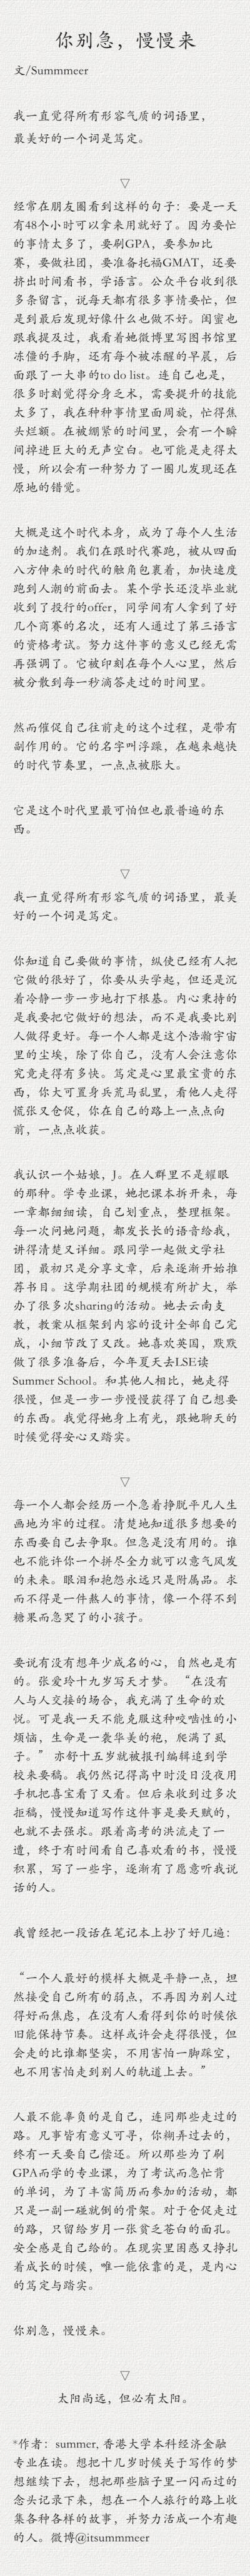 你别急，慢慢来
文/Summmeer
我一直觉得所有形容气质的词语里，
最美好的一个词是笃定。
▽
经常在朋友圈看到这样的句子：要是一天
有48个小时可以拿来用就好了。因为要忙
的事情太多了，要刷GPA，要参加比
赛，要做社团，要准备托福GMAT，还要
挤出时间看书，学语言。公众平台收到很
多条留言，说每天都有很多事情要忙，但
是到最后发现好像什么也做不好。闺蜜也
跟我提及过，我看着她微博里写图书馆里
冻僵的手脚，还有每个被冻醒的早晨，后
面跟了一大串的to do list。连自己也是，
很多时刻觉得分身乏术，需要提升的技能
太多了，我在种种事情里面周旋，忙得焦
头烂额。在被绷紧的时间里，会有一个瞬
间掉进巨大的无声空白。也可能是走得太
慢，所以会有一种努力了一圈儿发现还在
原地的错觉。
大概是这个时代本身，成为了每个人生活
的加速剂。我们在跟时代赛跑，被从四面
八方伸来的时代的触角包裹着，加快速度
跑到人潮的前面去。某个学长还没毕业就
收到了投行的offer，同学间有人拿到了好
几个商赛的名次，还有人通过了第三语言
的资格考试。努力这件事的意义已经无需
再强调了。它被印刻在每个人心里，然后
被分散到每一秒滴答走过的时间里。
然而催促自己往前走的这个过程，是带有
副作用的。它的名字叫浮躁，在越来越快
的时代节奏里，一点点被胀大。
它是这个时代里最可怕但也最普遍的东
西。
▽
我一直觉得所有形容气质的词语里，最美
好的一个词是笃定。
你知道自己要做的事情，纵使已经有人把
它做的很好了，你要从头学起，但还是沉
着冷静一步一步地打下根基。内心秉持的
是我要把它做好的想法，而不是我要比别
人做得更好。每一个人都是这个浩瀚宇宙
里的尘埃，除了你自己，没有人会注意你
究竟走得有多快。笃定是心里最宝贵的东
西，你大可置身兵荒马乱里，看他人走得
慌张又仓促，你在自己的路上一点点向
前，一点点收获。
我认识一个姑娘，J。在人群里不是耀眼
的那种。学专业课，她把课本拆开来，每
一章都细细读，自己划重点，整理框架。
每一次问她问题，都发长长的语音给我，
讲得清楚又详细。跟同学一起做文学社
团，最初只是分享文章，后来逐渐开始推
荐书目。这学期社团的规模有所扩大，举
办了很多次sharing的活动。她去云南支
教，教案从框架到内容的设计全部自己完
成，小细节改了又改。她喜欢英国，默默
做了很多准备后，今年夏天去LSE读
Summer School。和其他人相比，她走得
很慢，但是一步一步慢慢获得了自己想要
的东西。我觉得她身上有光，跟她聊天的
时候觉得安心又踏实。
▽
每一个人都会经历一个急着挣脱平凡人生
画地为牢的过程。清楚地知道很多想要的
东西要自己去争取。但急是没有用的。谁
也不能许你一个拼尽全力就可以意气风发
的未来。眼泪和抱怨永远只是附属品。求
而不得是一件熬人的事情，像一个得不到
糖果而急哭了的小孩子。
要说有没有想年少成名的心，自然也是有
的。张爱玲十九岁写天才梦。“在没有
人与人交接的场合，我充满了生命的欢
悦。可是我一天不能克服这种咬啮性的小
烦恼，生命是一袭华美的袍，爬满了虱
子。”亦舒十五岁就被报刊编辑追到学
校来要稿。我仍然记得高中时没日没夜用
手机把喜宝看了又看。但后来收到过多次
拒稿，慢慢知道写作这件事是要天赋的，
也就不去强求。跟着高考的洪流走了一
遭，终于有时间看自己喜欢看的书，慢慢
积累，写了一些字，逐渐有了愿意听我说
话的人。
我曾经把一段话在笔记本上抄了好几遍：
“一个人最好的模样大概是平静一点，坦
然接受自己所有的弱点，不再因为别人过
得好而焦虑，在没有人看得到你的时候依
旧能保持节奏。这样或许会走得很慢，但
会走的比谁都坚实，不用害怕一脚踩空，
也不用害怕走到别人的轨道上去。”
人最不能辜负的是自己，连同那些走过的
路。凡事皆有意义可寻，你糊弄过去的，
终有一天要自己偿还。所以那些为了刷
GPA而学的专业课，为了考试而急忙背
的单词，为了丰富简历而参加的活动，都
只是一副一碰就倒的骨架。对于仓促走过
的路，只留给岁月一张贫乏苍白的面孔。
安全感是自己给的。在现实里困惑又挣扎
着成长的时候，唯一能依靠的是，是内心
的笃定与踏实。
你别急，慢慢来。
▽
太阳尚远，但必有太阳。
*作者：summer, 香港大学本科经济金融
专业在读。想把十几岁时候关于写作的梦
想继续下去，想把那些脑子里一闪而过的
念头记录下来，想在一个人旅行的路上收
集各种各样的故事，并努力活成一个有趣
的人。微博@itsummmeer